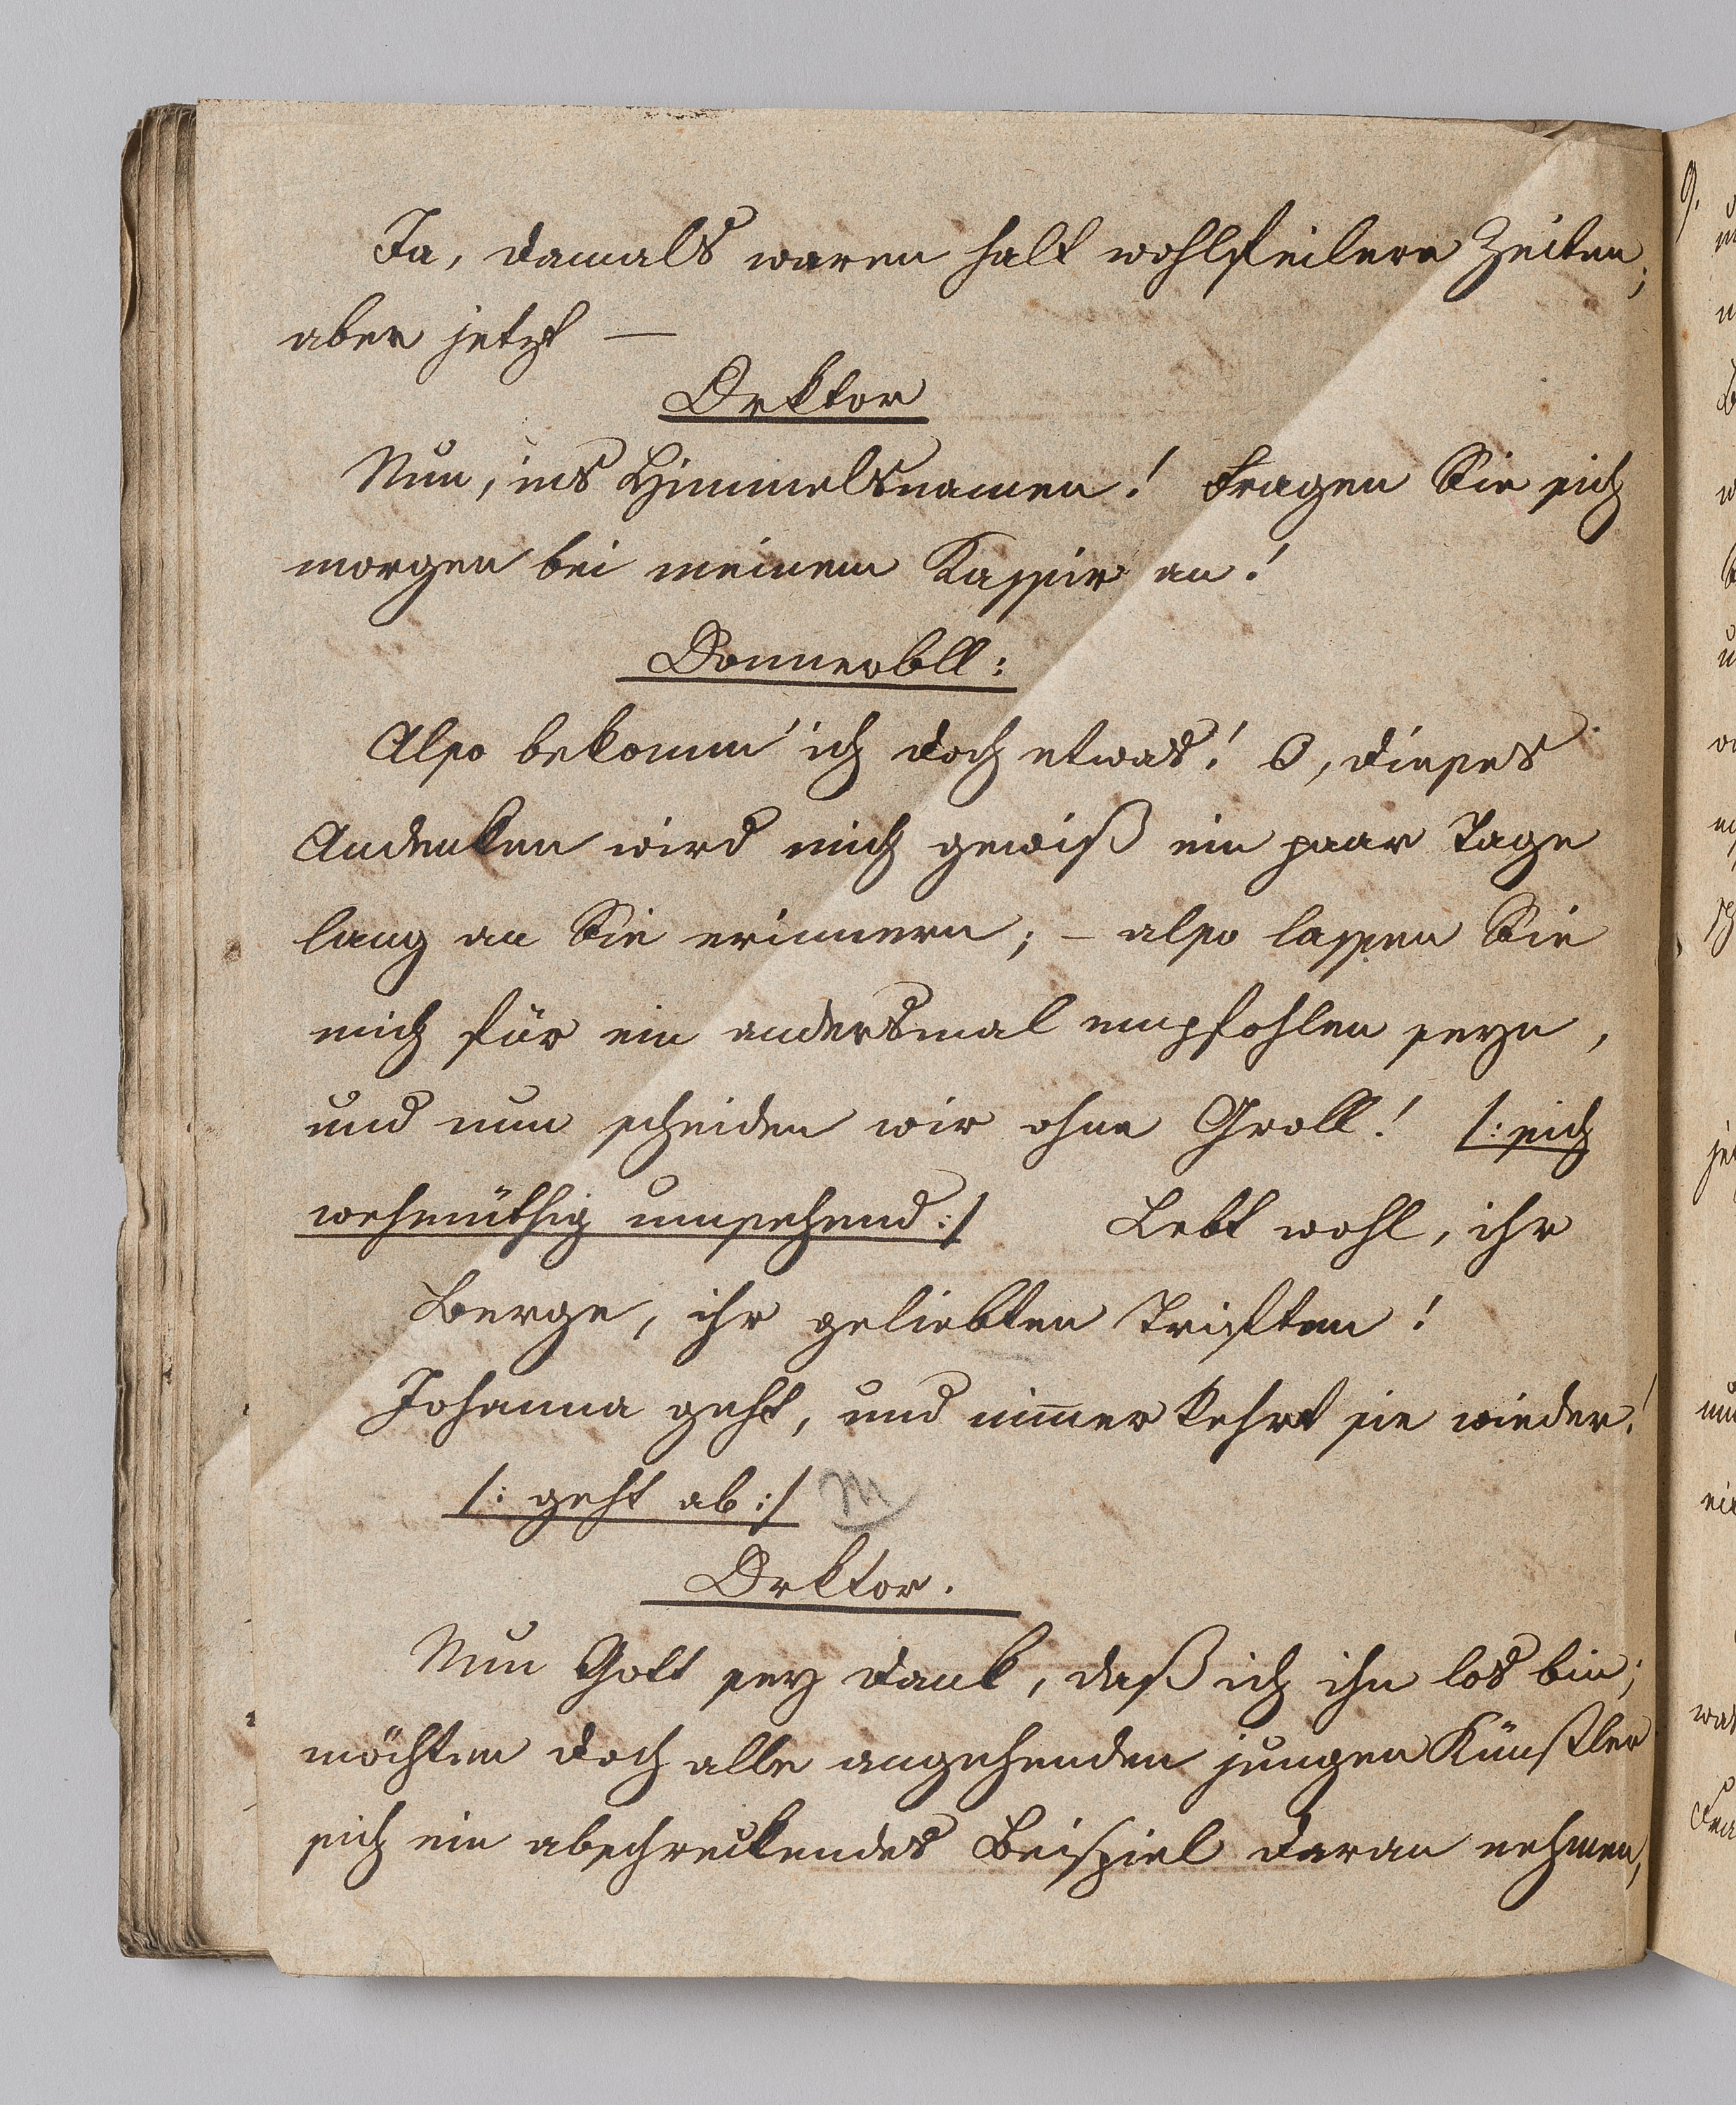 Ja, damals waren halt wohlfeilere Zeiten;
aber jetzt —
Drktor
Nun, ins Himmelsnamen! Fragen Sie sich
morgen bei meinem Kassir an!
Donnerbll:
Also bekomm' ich doch etwas! O, dieses
Andenken wird mich gewiß ein paar Tage
lang an Sie erinnern; – also lassen Sie
mich für ein andersmal empfohlen seyn,
und nun scheiden wir ohne Groll! /: sich
wehmüthig umsehend :/ Lebt wohl, ihr
Berge, ihr geliebten Triften!
Johanna geht, und nimmer kehrt sie wieder!
/: geht ab :/
Drktor.
Nun Gott sey dank, daß ich ihn los bin;
möchten doch alle angehenden jungen Künstler
sich ein abschreckendes Beispiel daran nehmen,